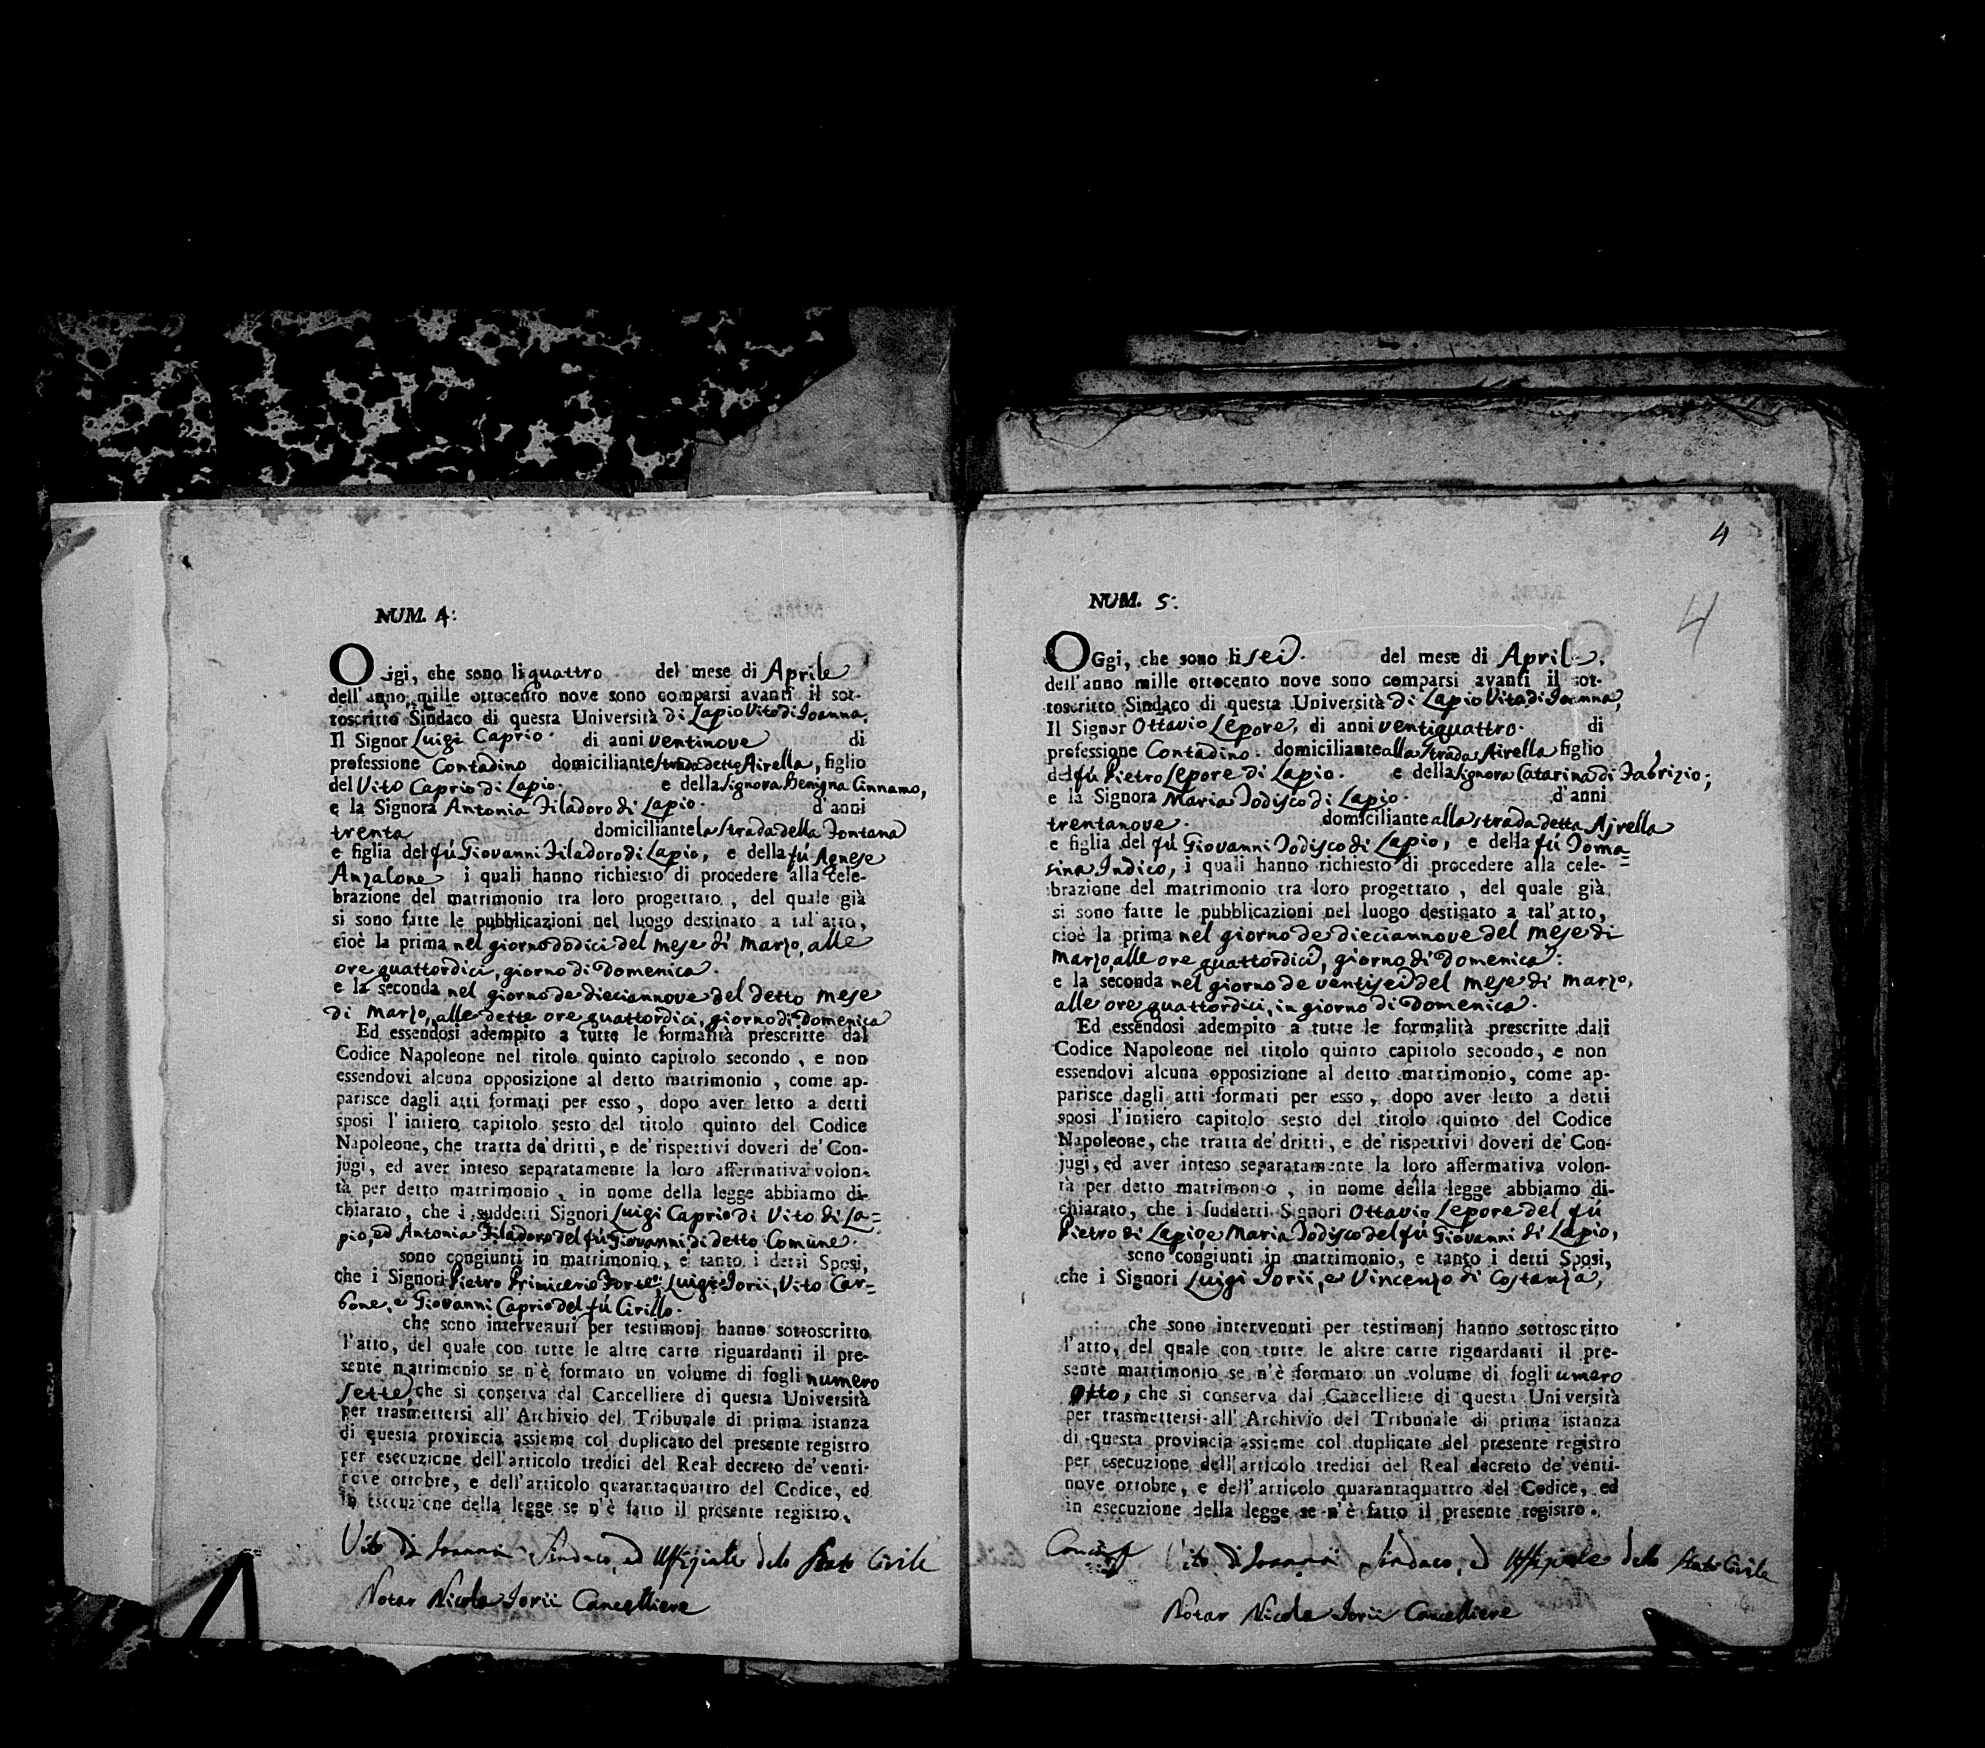 NUM. 4:
Oggi, che sono li quattro del mese di Aprile
dell'anno mille ottocento nove sono comparsi avanti il sot-
toscritto Sindaco di questa Università di Lapio Vito di Joanna.
Il Signor Luigi Caprio. di anni ventinove di
professione Contadino domiciliante strada detta Airella, figlio
del Vito Caprio di Lapio. e della Signora Benigna Cinnamo,
e la Signora Antonia Filadoro di Lapio. d'anni
trenta domiciliante la strada della Fontana
e figlia del fú Giovanni Filadoro di Lapio, e della fú Agnese
Anzalone i quali hanno richiesto di procedere alla cele-
brazione del matrimonio tra loro progettato, del quale già
si sono fatte le pubblicazioni nel luogo destinato a tal'atto,
cioè la prima nel giorno dodici del mese di Marzo, alle
ore quattordici, giorno di Domenica.
e la seconda nel giorno de dieciannove del detto mese
di Marzo, alle dette ore quattordici, giorno di Domenica
Ed essendosi adempito a tutte le formalità prescritte dal
Codice Napoleone nel titolo quinto capitolo secondo, e non
essendovi alcuna opposizione al detto matrimonio, come ap-
parisce dagli atti formati per esso, dopo aver letto a detti
sposi l'intiero capitolo sesto del titolo quinto del Codice
Napoleone, che tratta de' dritti, e de' rispettivi doveri de' Con-
jugi, ed aver inteso separatamente la loro affermativa volon-
tà per detto matrimonio, in nome della legge abbiamo di-
chiarato, che i suddetti Signori Luigi Caprio di Vito di La=
pio, ed Antonia Filadoro del fú Giovanni, di detto Comune.
sono congiunti in matrimonio, e tanto i detti Sposi,
che i Signori Pietro Primicerio Forte, Luigi Jorii, Vito Car=
bone, e Giovanni Caprio del fú Cirillo.
che sono intervenuti per testimonj hanno sottoscritto
l'atto, del quale con tutte le altre carte riguardanti il pre-
sente matrimonio se n'è formato un volume di fogli numero
sette, che si conserva dal Cancelliere di questa Università
per trasmettersi all'Archivio del Tribunale di prima istanza
di questa provincia assieme col duplicato del presente registro
per esecuzione dell'articolo tredici del Real decreto de' venti-
nove ottobre, e dell'articolo quarantaquattro del Codice, ed
in esecuzione della legge se n'è fatto il presente registro.
Vito Di Joanna Sindaco, ed Uffiziale dello Stato Civile
Notar Nicola Jorii Cancelliere
4
4
NUM. 5:
OGgi, che sono li sei. del mese di Aprile.
dell'anno mille ottocento nove sono comparsi avanti il sot-
toscritto Sindaco di questa Università di Lapio Vito di Joanna,
Il Signor Ottavio Lepore, di anni ventiquattro. di
professione Contadino. domiciliante alla strada Airella figlio
del fú Pietro Lepore di Lapio. e della Signora Catarina di Fabrizio;
e la Signora Maria Jodisco di Lapio. d'anni
trentanove. domiciliante alla strada detta Ajrella
e figlia del fú Giovanni Jodisco di Lapio, e della fú Toma=
sina Indico, i quali hanno richiesto di procedere alla cele-
brazione del matrimonio tra loro progettato, del quale già
si sono fatte le pubblicazioni nel luogo destinato a tal'atto,
cioè la prima nel giorno de dieciannove del mese di
Marzo, alle ore quattordici, giorno di Domenica:
e la seconda nel giorno de ventisei del mese di Marzo,
alle ore quattordici, in giorno di Domenica.
Ed essendosi adempito a tutte le formalità prescritte dal
Codice Napoleone nel titolo quinto capitolo secondo, e non
essendovi alcuna opposizione al detto matrimonio, come ap-
parisce dagli atti formati per esso, dopo aver letto a detti
sposi l'intiero capitolo sesto del titolo quinto del Codice
Napoleone, che tratta de' dritti, e de' rispettivi doveri de' Con-
jugi, ed aver inteso separatamente la loro affermativa volon-
tà per detto matrimonio, in nome della legge abbiamo di-
chiarato, che i suddetti Signori Ottavio Lepore del fú
Pietro di Lapio, e Maria Jodisco del fú Giovanni di Lapio,
sono congiunti in matrimonio, e tanto i detti Sposi,
che i Signori Luigi Jorii, e Vincenzo di Costanza,
che sono intervenuti per testimonj hanno sottoscritto
l'atto, del quale con tutte le altre carte riguardanti il pre-
sente matrimonio se n'è formato un volume di fogli umero
otto, che si conserva dal Cancelliere di questa Università
per trasmettersi all'Archivio del Tribunale di prima istanza
di questa provincia assieme col duplicato del presente registro
per esecuzione dell'articolo tredici del Real decreto de' venti-
nove ottobre, e dell'articolo quarantaquattro del Codice, ed
in esecuzione della legge se n'è fatto il presente registro.
Vito Di Joanna Sindaco, ed Uffiziale dello Stato Civile
Notar Nicola Jorii Cancelliere